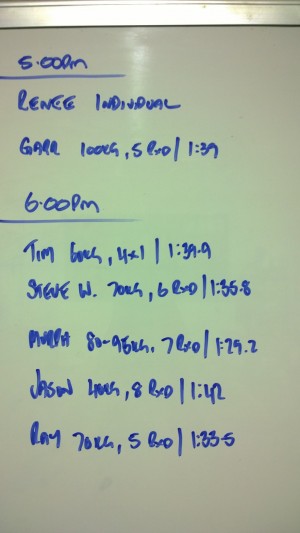 5:00pm
RENEE INDIVIDUAL
GARR 100KG, 5 RXD | 1:39
6:00pm
TIM 60KG, 4x1 | 1:39.9
STEVE W. 70KG, 6 RXD | 1:35.8
MURPH 80-95KG, 7 RXD | 1:29.2
JASON 40KG, 8 RXD | 1:42
RAY 70KG, 5 RXD | 1:33.5